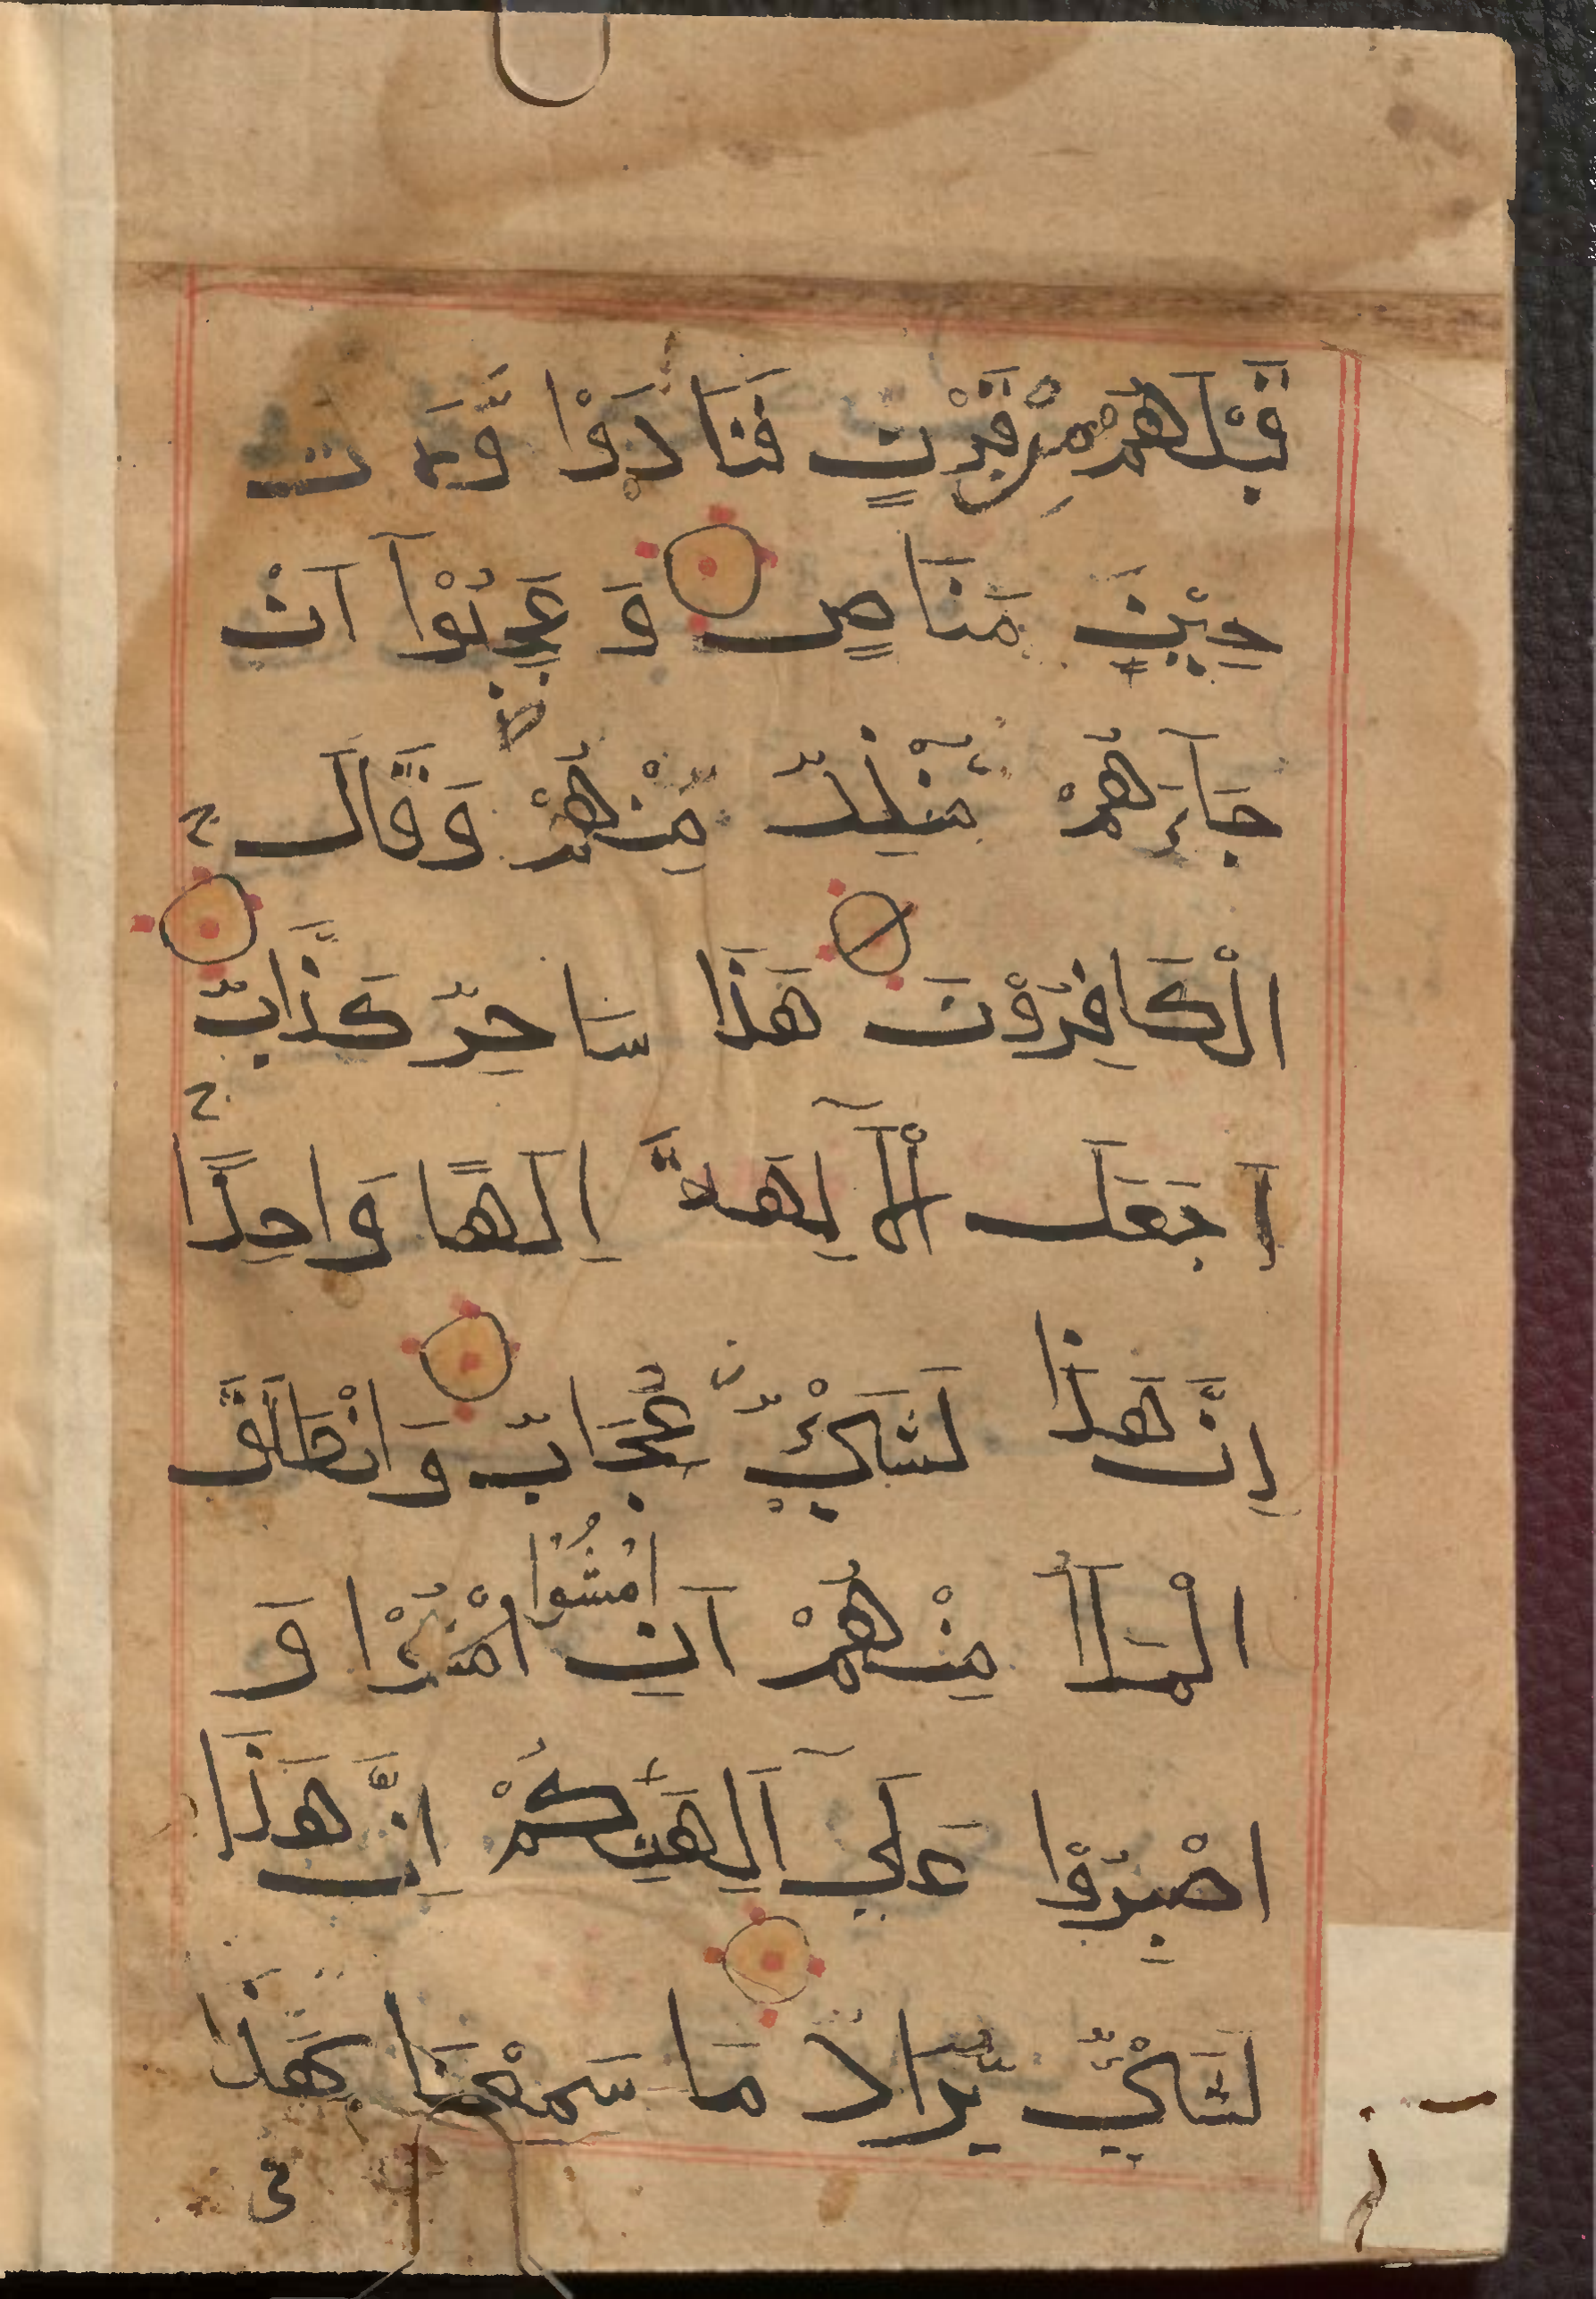 قَبْلِهُمْ مِّنْ قَرْنٍ فَنَادَوْا وَّلَاتَ
حِيْنَ مَنَاصٍ وَ عَجِبُوْآ اَنْ
جَآءَهُمْ مُّنْذِرٌ مِّنْهُمْ وَقَالَ
الْكَافِرُوْنَ هَذَا سَاحِرٌ كَذَّابٌ
اَجَعَلَ الْآلِهَةَ اِلَهًا وَاحِدًا
اِنَّ هَذَا لَشَيْءٌ عُجَابٌ وَانْطَلَقَ
الْمَلَاُ مِنْهُمْ اَنِ امْشُوْا وَ
امْشُوْا
اصْبِرُوْا عَلَى آلِهَتِكُمْ اِنَّ هَذَا
لَشَيْءٌ يُّرَادُ مَا سَمِعْنَا بِهَذَا
فى